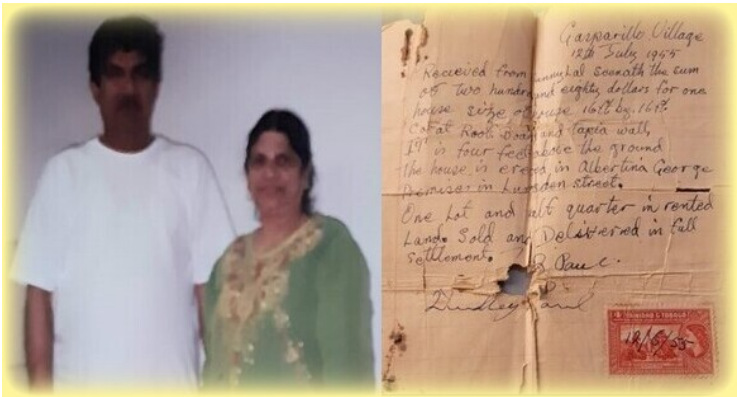 Gasparillo Village
12th July 1955
Recieved from unnylal Seenath the sum
of two hundred and eighty dollars for one
house size of house 16ft by 16ft
Roof Board and Tapia wall
IT is four feet above the ground
The house is erected in Albertina George
Premises in Lumsden street.
One Lot and half quarter in rented
Land. Sold and Delivered in full
settlement. R Paul.
Dudley Paul
TRINIDAD & TOBAGO